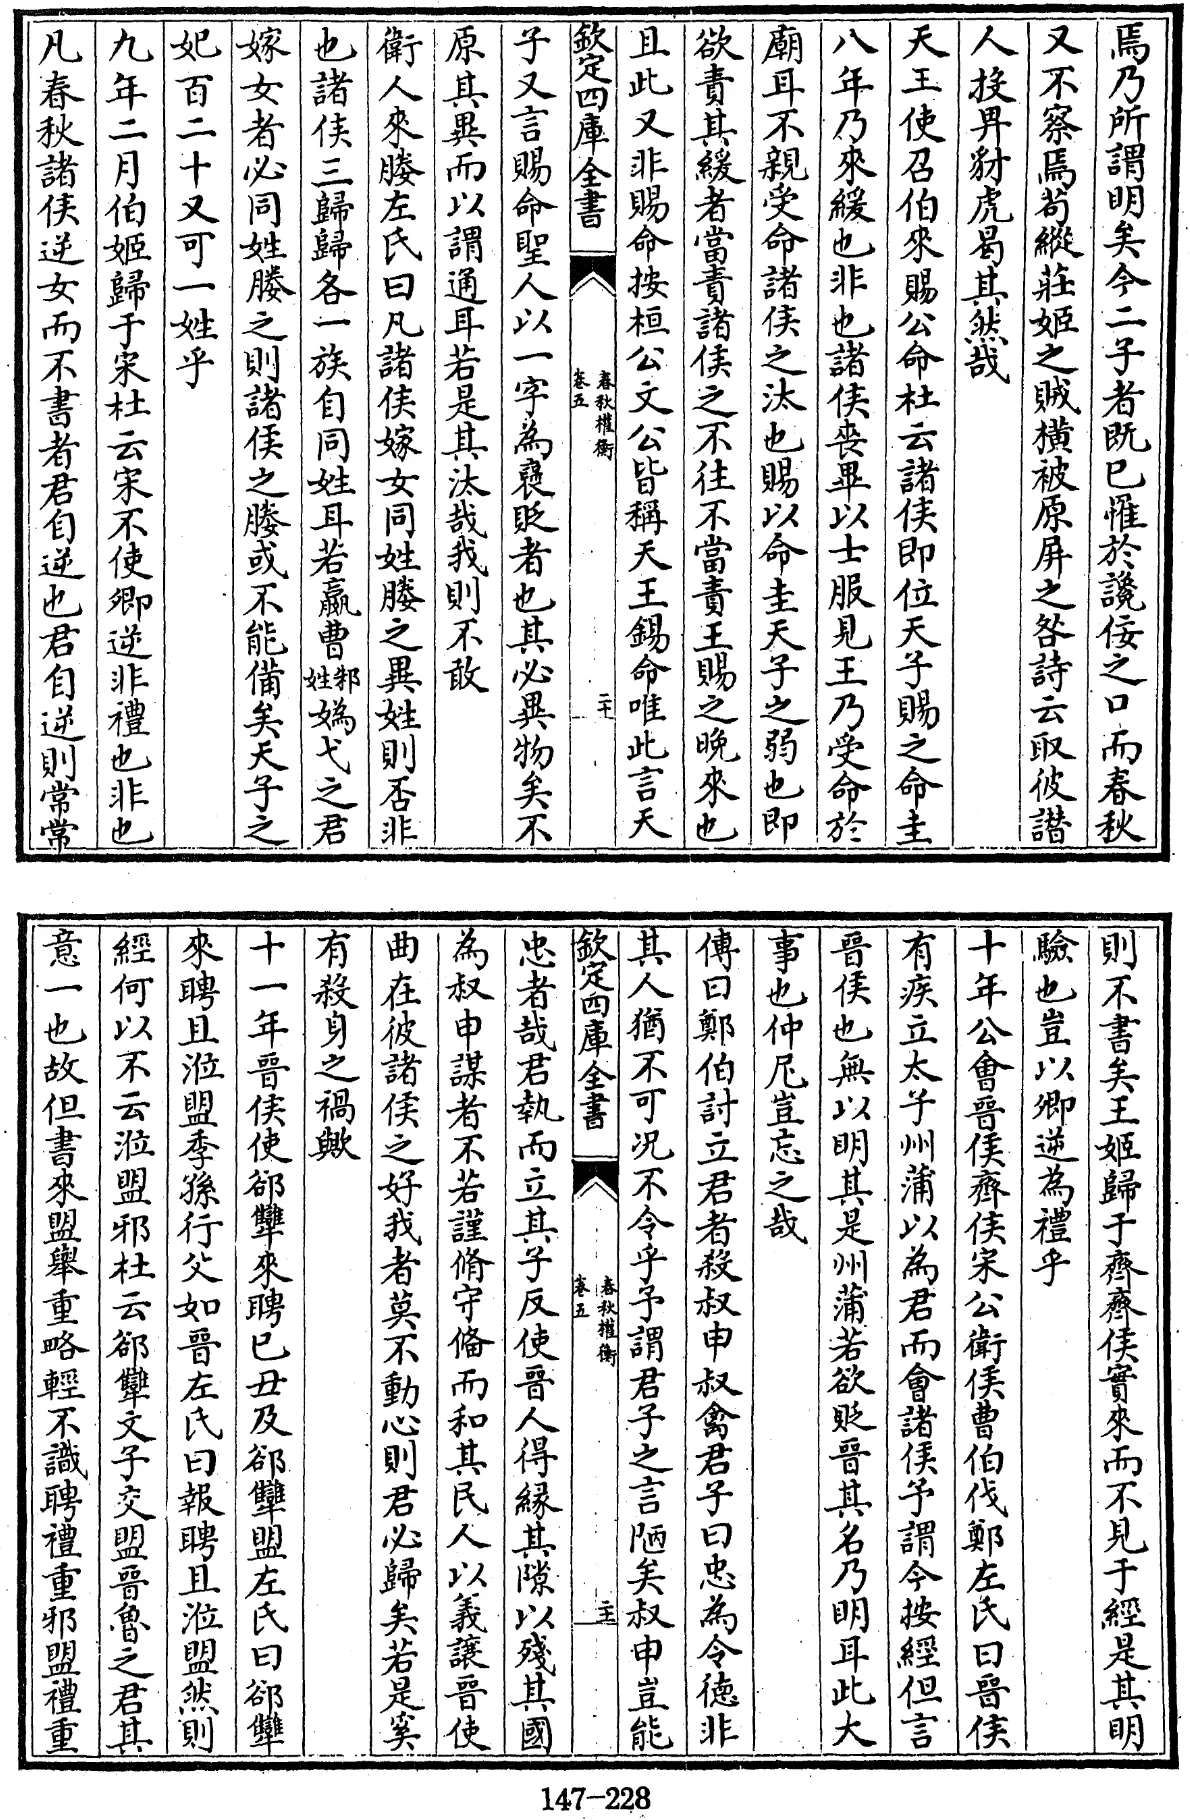 焉乃所謂明矣今二子者既已罹於讒佞之口而春秋
又不察焉茍縱莊姬之賊橫被原屏之咎詩云取彼譖
人投畀豺虎曷其然哉
天王使召伯來賜公命杜云諸侯即位天子賜之命圭
八年乃來緩也非也諸侯喪畢以士服見王乃受命於
廟耳不親受命諸侯之汰也賜以命圭天子之弱也即
欲責其緩者當責諸侯之不往不當責王賜之晚來也
且此又非賜命按桓公文公皆稱天王錫命唯此言天
欽定四庫全書
春秋權衡
卷五
二十
子又言賜命聖人以一字為襃貶者也其必異物矣不
原其異而以謂通耳若是其汰哉我則不敢
衛人來媵左氏曰凡諸侯嫁女同姓媵之異姓則否非
也諸侯三歸歸各一族自同姓耳若嬴曹邾姓媯弋之君
嫁女者必同姓媵之則諸侯之媵或不能備矣天子之
妃百二十又可一姓乎
九年二月伯姬歸于宋杜云宋不使卿逆非禮也非也
凡春秋諸侯逆女而不書者君自逆也君自逆則常常
則不書矣王姬歸于齊齊侯實來而不見于經是其明
驗也豈以卿逆為禮乎
十年公會晉侯齊侯宋公衛侯曹伯伐鄭左氏曰晉侯
有疾立太子州蒲以為君而會諸侯予謂今按經但言
晉侯也無以明其是州蒲若欲貶晉其名乃明耳此大
事也仲尼豈忘之哉
傳曰鄭伯討立君者殺叔申叔禽君子曰忠為令德非
其人猶不可况不令乎予謂君子之言陋矣叔申豈能
欽定四庫全書
春秋權衡
卷五
二十一
忠者哉君執而立其子反使晉人得緣其隙以殘其國
為叔申謀者不若謹脩守備而和其民人以義讓晉使
曲在彼諸侯之好我者莫不動心則君必歸矣若是奚
有殺身之禍歟
十一年晉侯使郤犫來聘已丑及郤犫盟左氏曰郤犫
來聘且涖盟季孫行父如晉左氏曰報聘且涖盟然則
經何以不云涖盟邪杜云郤犫文子交盟晉魯之君其
意一也故但書來盟舉重略輕不識聘禮重邪盟禮重
147-228